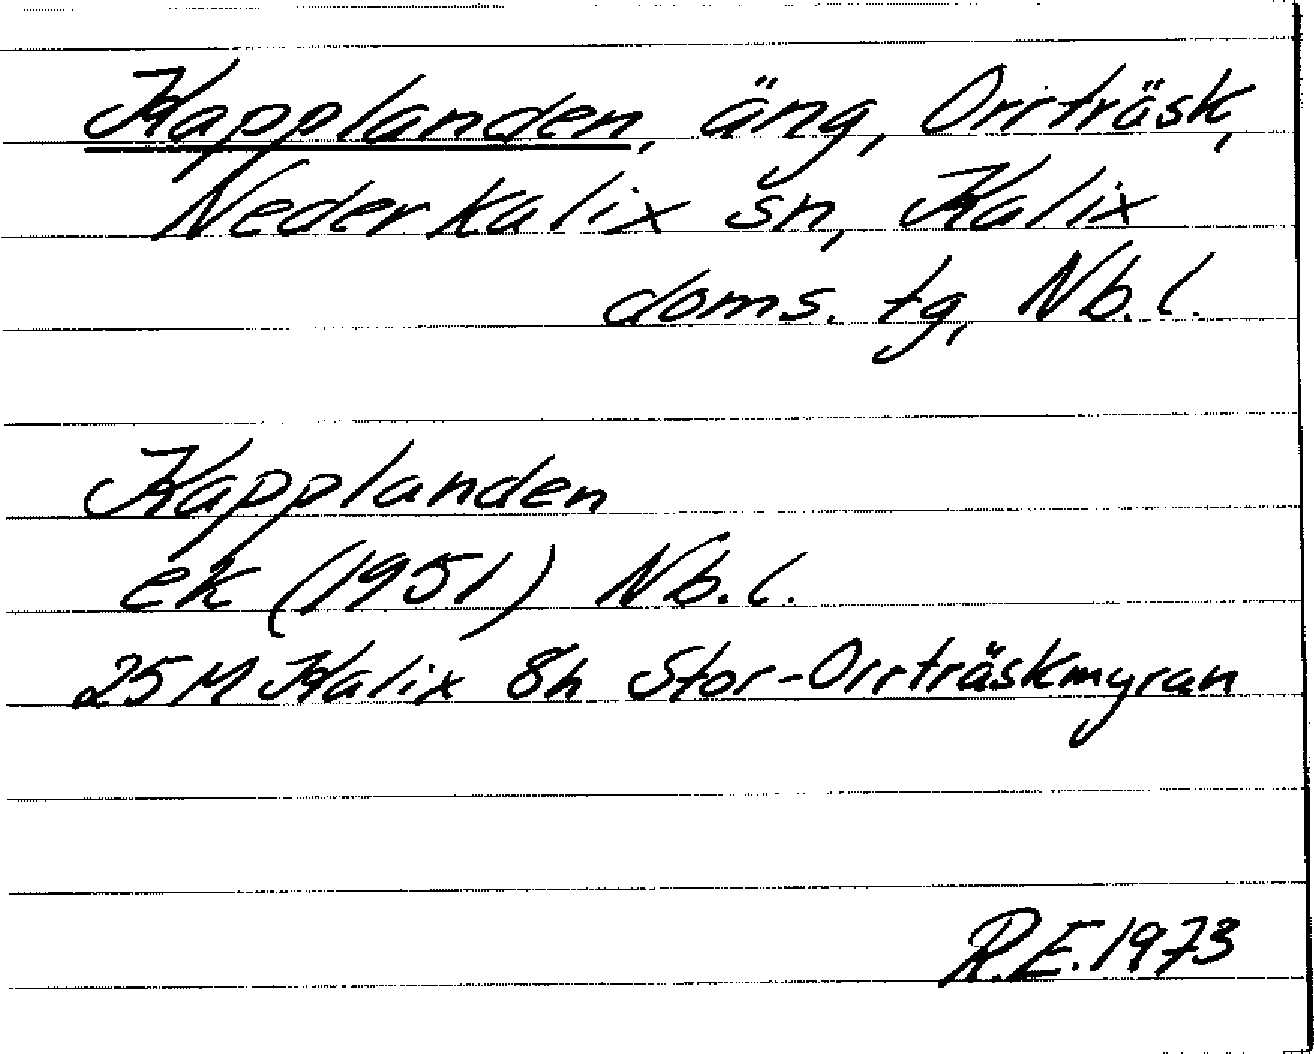 Kapplanden, äng, Orrträsk,
Nederkalix sn, Kalix
doms. tg, Nb.l.
Kapplanden
ek (1951) Nb.l.
25M Kalix 8h Stor-Orrträskmyran
R.E. 1973